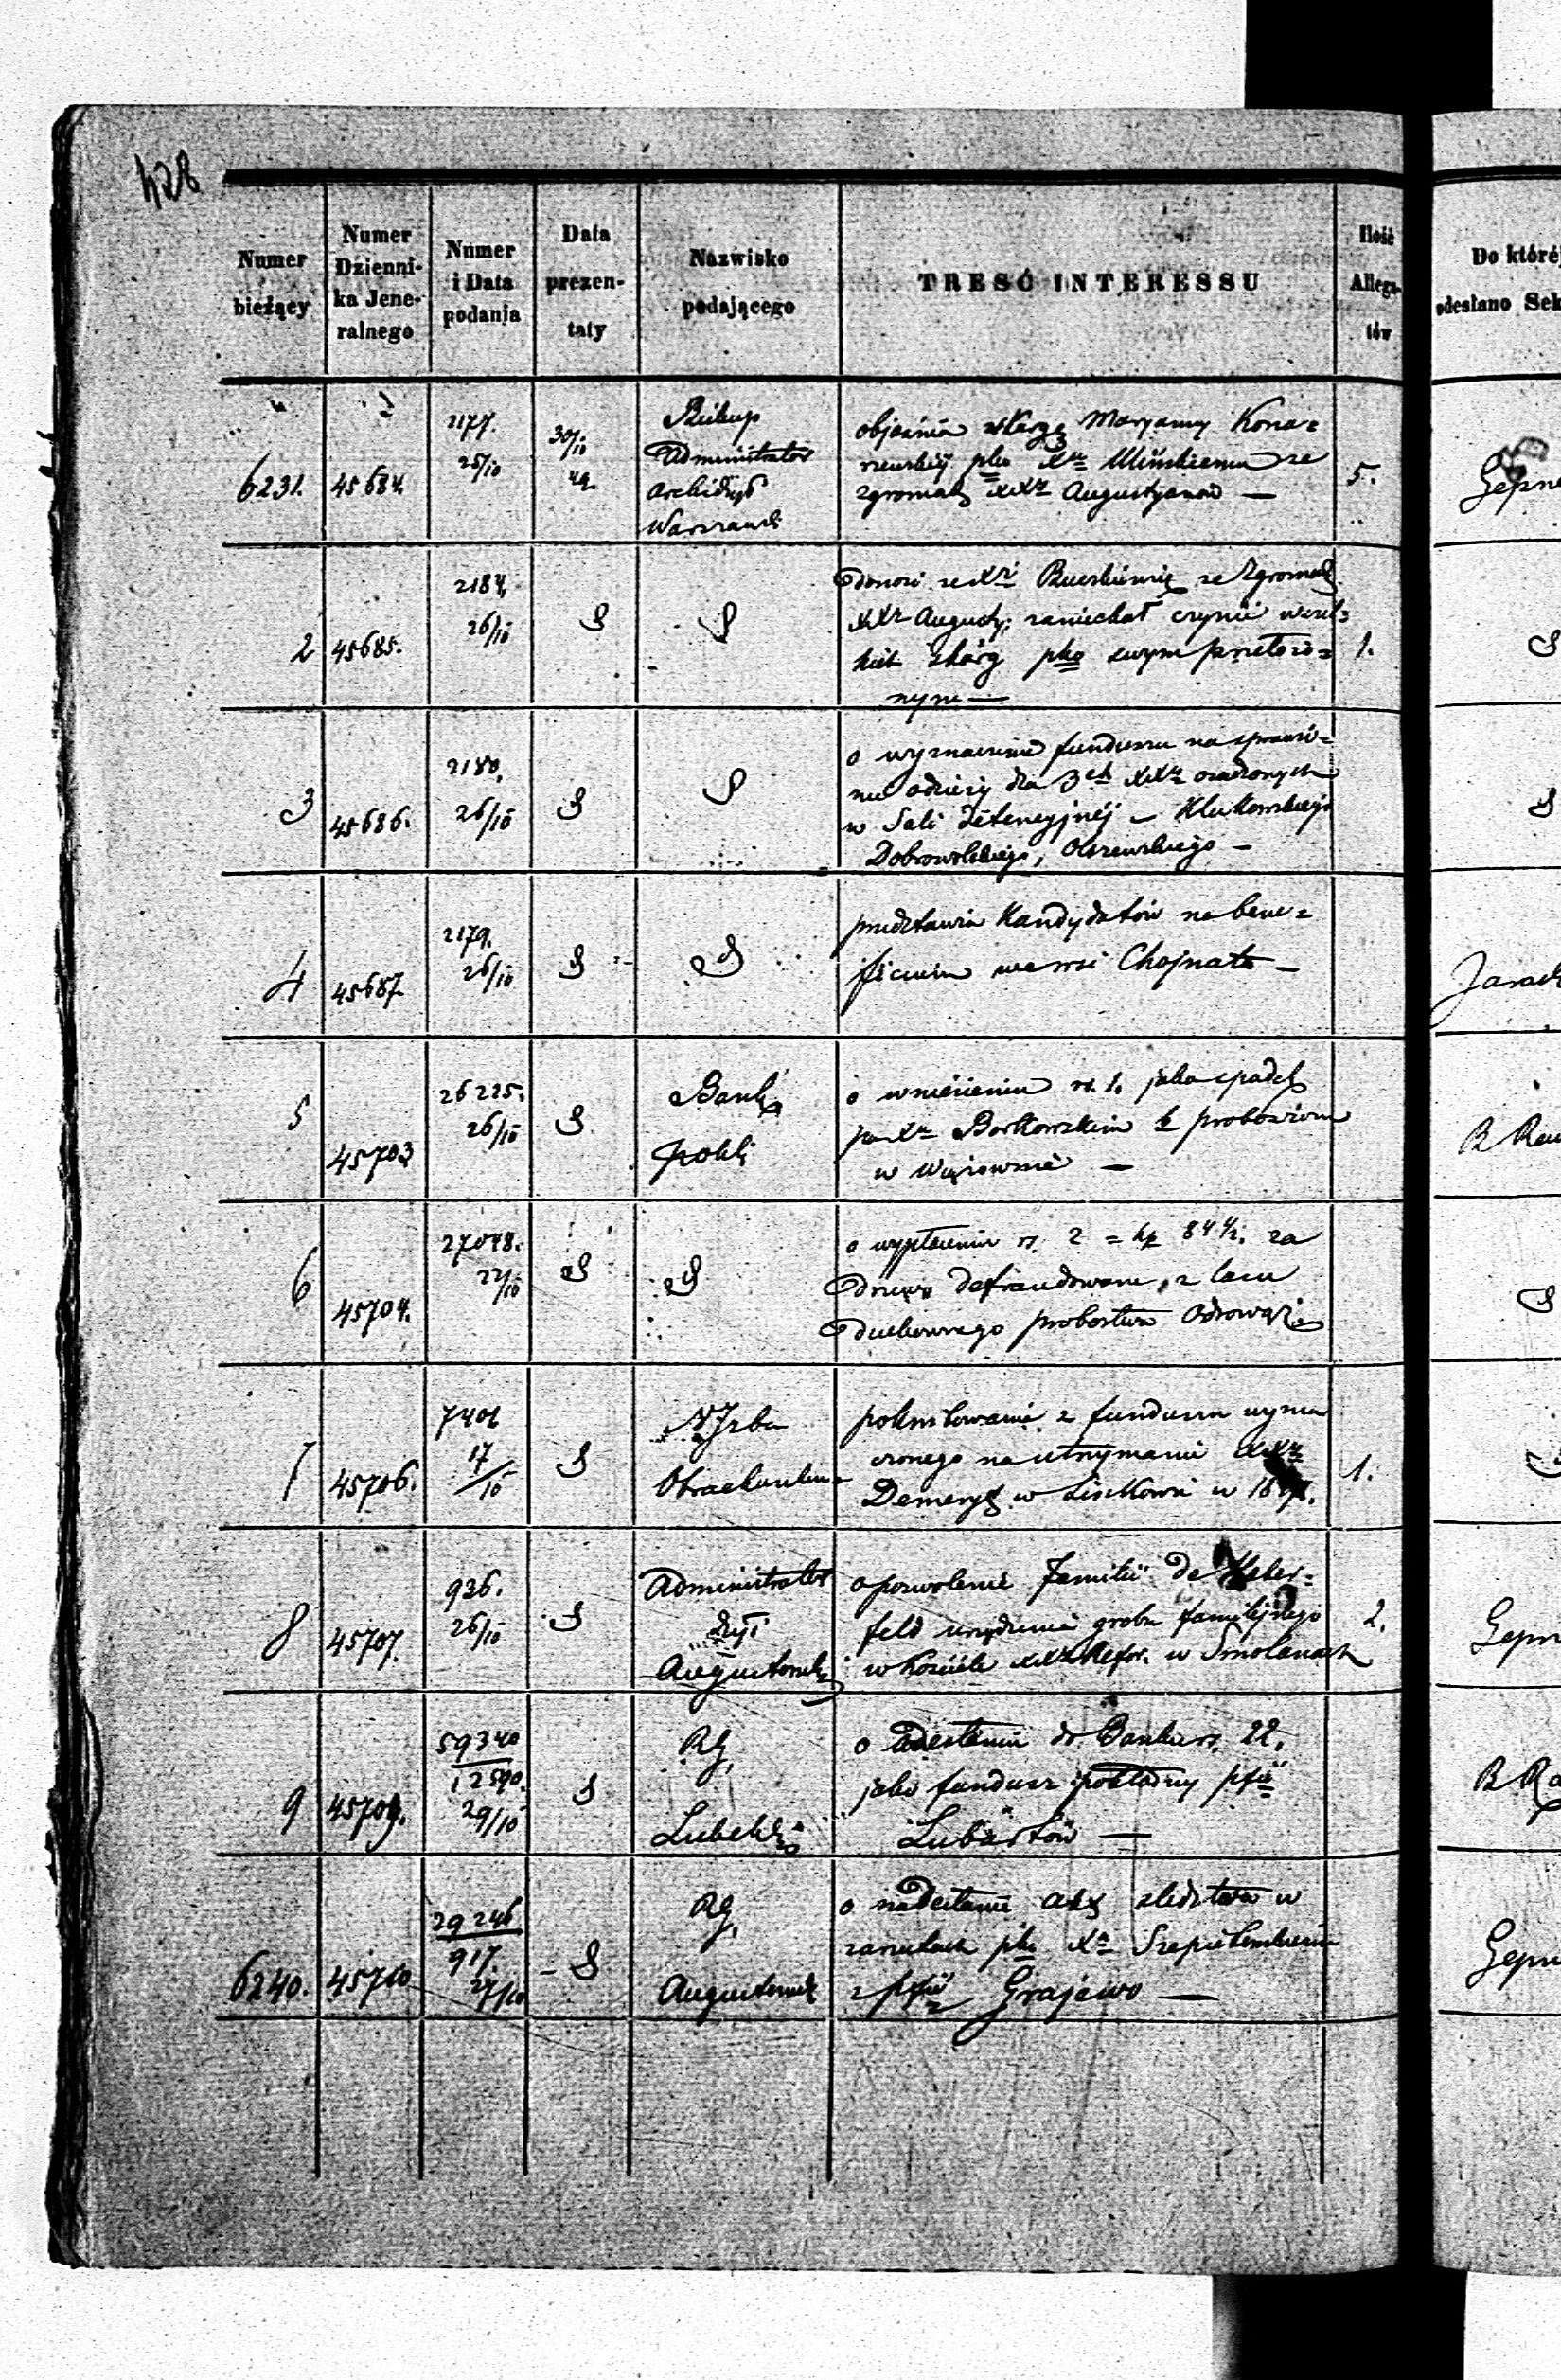 428
Numer bieżący
Numer Dzienni-ka Jene-ralnego
Numer i Data podania
Data prezen-taty
Nazwisko podającego
TRESĆ INTERESSU
Ilość Allega-tów
Do które
odesłano Sek
6231. 45684. 2177. 25/10 30/10 49.
Biskup
Administrator
Archidyo
Warszawsk
objaśnia skargę Maryanny Kona=
rzewskiej pko Xu Ulińskiemu ze
zgromadz XXy Augustyanów —
5.
2 45685. 2184. 26/10 S S
donosi że Xdz ze Zgromadz
XXy Augusty: zaniechał czynić wszel=
kich skarg pko swym przełożo=
nym —
1.
S
3 45686. 2180. 26/10 S S
o wyznaczenie funduszu na sprawie=
nie odzieży dla 3ch XXy osadzonych
w Sali detencyjnéj — Klukowskiego
Dobrowolskiego, Olszewskiego —
S
4 45687 2179. 26/10 S S
przedstawia Kandydatów na bene=
ficium we wsi Chojnata —
5 45703 26225. 26/10 S
Bank
Polski
o wniesieniu rs. 1. jako spadek
po Xu Borkowskim proboszczu
w Wąsownie —
6 45704. 27048. 22/10 S S
o wypłaceniu rs. 2 = kp 84½. za
drzewo defraudowane, z lasu
duchownego probostwa Odrowąż
S
7 45706. 7401 17/10 S
N Izba
Obrachunkow
pokwitowanie z funduszu wyzna
czonego na utrzymanie XXy
Demeryt w Liszkowie w
1.
8 45707. 936. 26/10 S
Administrator
Dyi
Augustowsk
o pozwolenie Familii de
feld urządzenia grobu familijnego
w Kościele XXy Refor. w Smolanach
2.
9 45709. 59340 12590. 29/10 S
RG,
Lubelski
o odesłaniu do Banku rs. 22.
jako fundusz pokładny pfii
Lubartów —
6240. 45710 29246 917. 27/10 S
RG,
Augustowsk
o nadesłanie akt śledztwa w
zarzutach pko Xu
z pfii Grajewo —